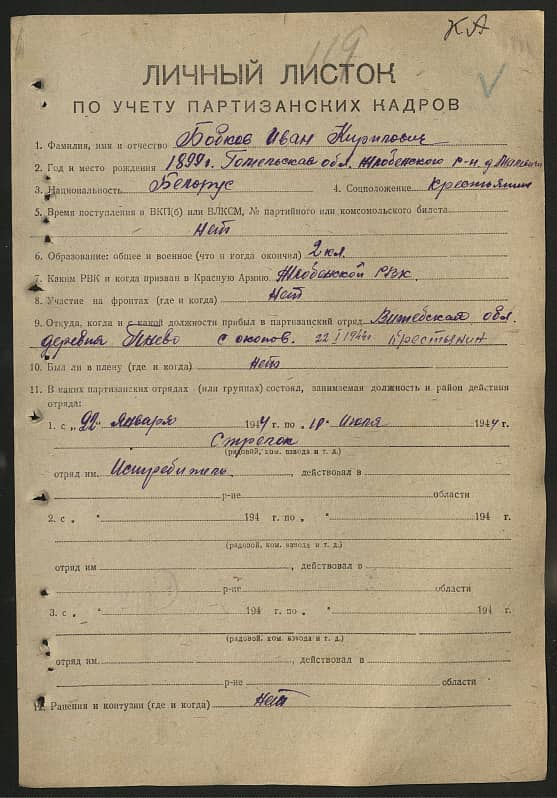 КА
119
ЛИЧНЫЙ ЛИСТОК
ПО УЧЕТУ ПАРТИЗАНСКИХ КАДРОВ
1. Фамилия, имя и отчество Бобков Иван Кирилович
2. Год и место рождения 1899г. Гомельская обл. Жлобенского р-н. д.
3. Национальность Белорус 4. Соцположение крестьянин
5. Время поступления в ВКП(б) или ВЛКСМ, № партийного или комсомольского билета
Нет
6. Образование: общее и военное (что и когда окончил) 2 кл.
7. Каким РВК и когда призван в Красную Армию Жлобенской РВК
8. Участие на фронтах (где и когда) Нет
9. Откуда, когда и с какой должности прибыл в партизанский отряд Витебская обл.
деревня с окопов. 22 I 1944г. крестьянин
10. Был ли в плену (где и когда) Нет
11. В каких партизанских отрядах (или группах) состоял, занимаемая должность и район действия
отряда:
1. с „22" Января 1944 г. по „10" Июля 1944 г.
Стрелок
(рядовой, ком. взвода и т. д.)
отряд им. Истребитель, действовал в
р-не области
2. с „ " 194 г. по „ " 194 г.
(рядовой, ком. взвода и т. д.)
отряд им. , действовал в
р-не области
3. с „ " 194 г. по „ " 194 г.
(рядовой, ком. взвода и т. д.)
отряд им. , действовал в
р-не области
12. Ранения и контузии (где и когда) Нет